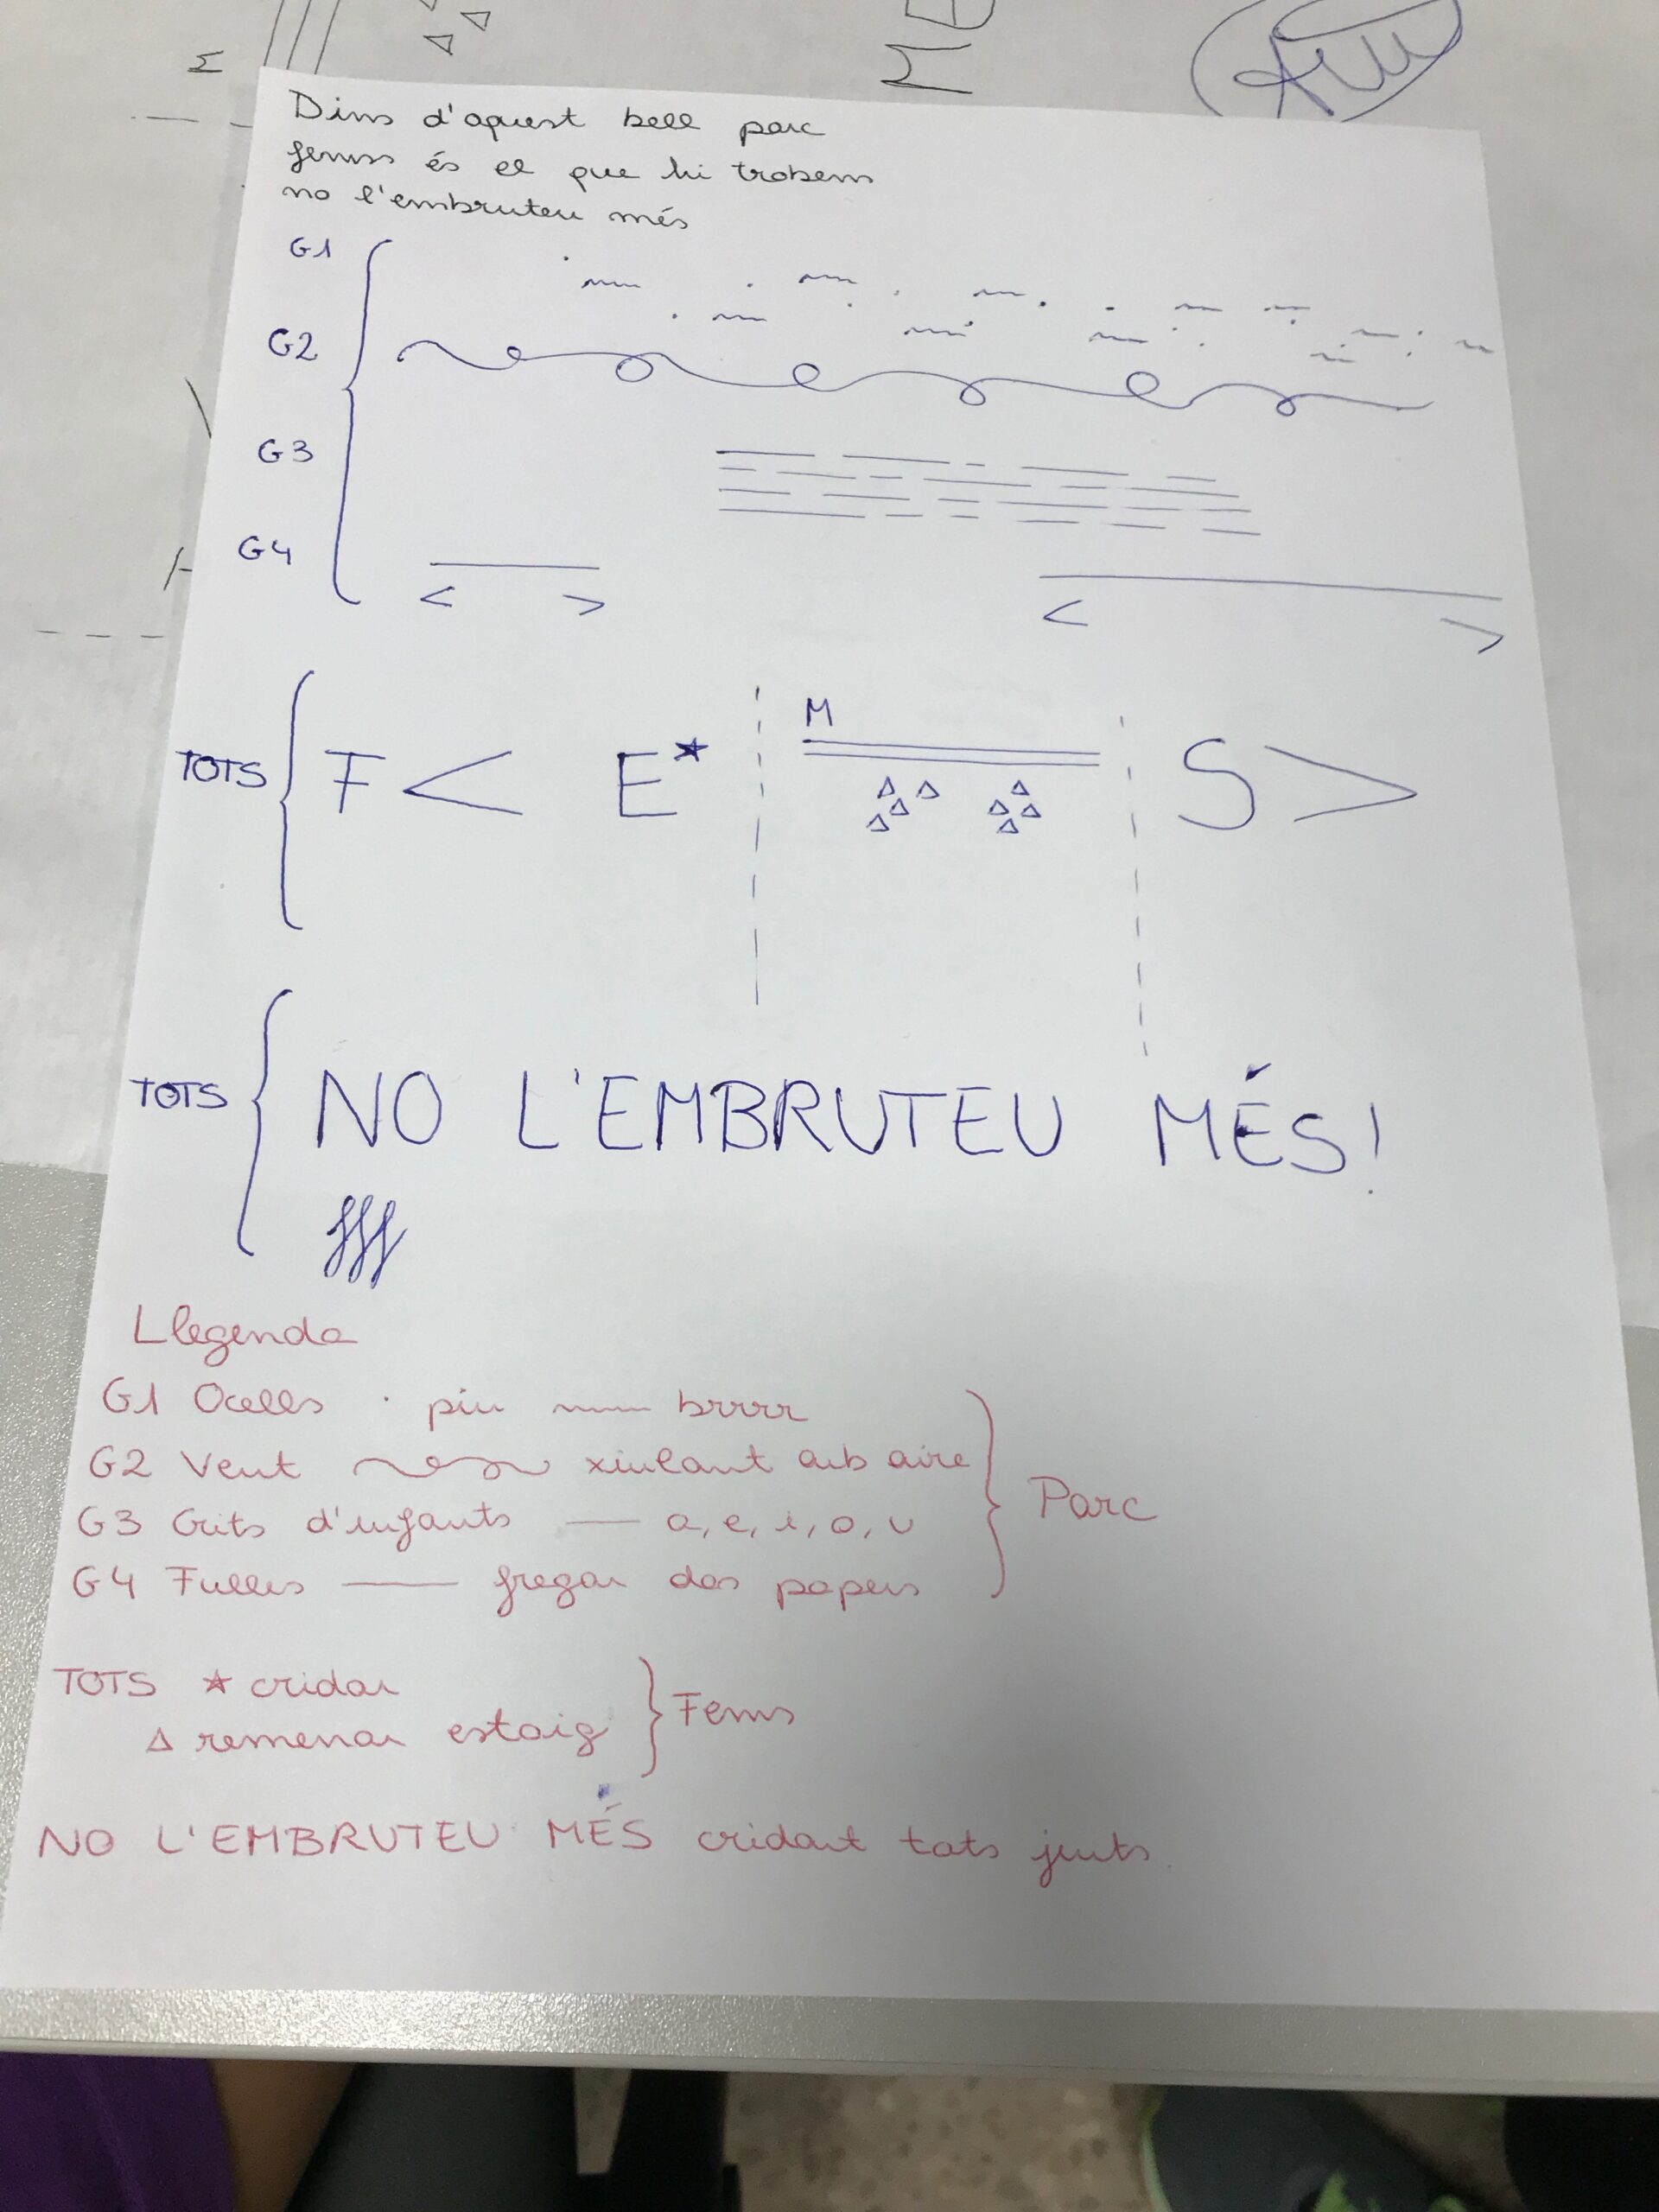 Dins d'aquest bell parc
fems és el que hi trobem
no l'embruteu més
G1
G2
G3
G4
TOTS F < E* M S >
TOTS NO L'EMBRUTEU MÉS!
fff
Llegenda
G1 Ocells · piu ~~~ brrrr
G2 Vent xiulant amb aire
G3 Crits d'infants — a, e, i, o, u
G4 Fulles — fregar dos papers
Parc
TOTS ★ cridar
△ remenar estoig
Fems
NO L'EMBRUTEU MÉS cridant tots junts.